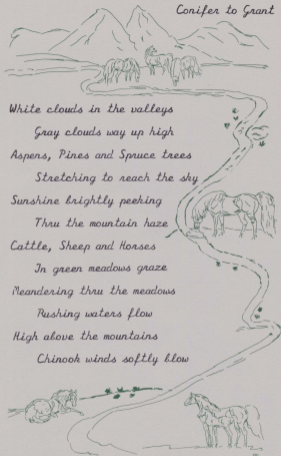 Conifer to Grant
White clouds in the valleys
Gray clouds way up high
Aspens, Pines and Spruce trees
Stretching to reach the sky
Sunshine brightly peeking
Thru the mountain haze
Cattle, Sheep and Horses
In green meadows graze
Meandering thru the meadows
Rushing waters flow
High above the mountains
Chinook winds softly blow